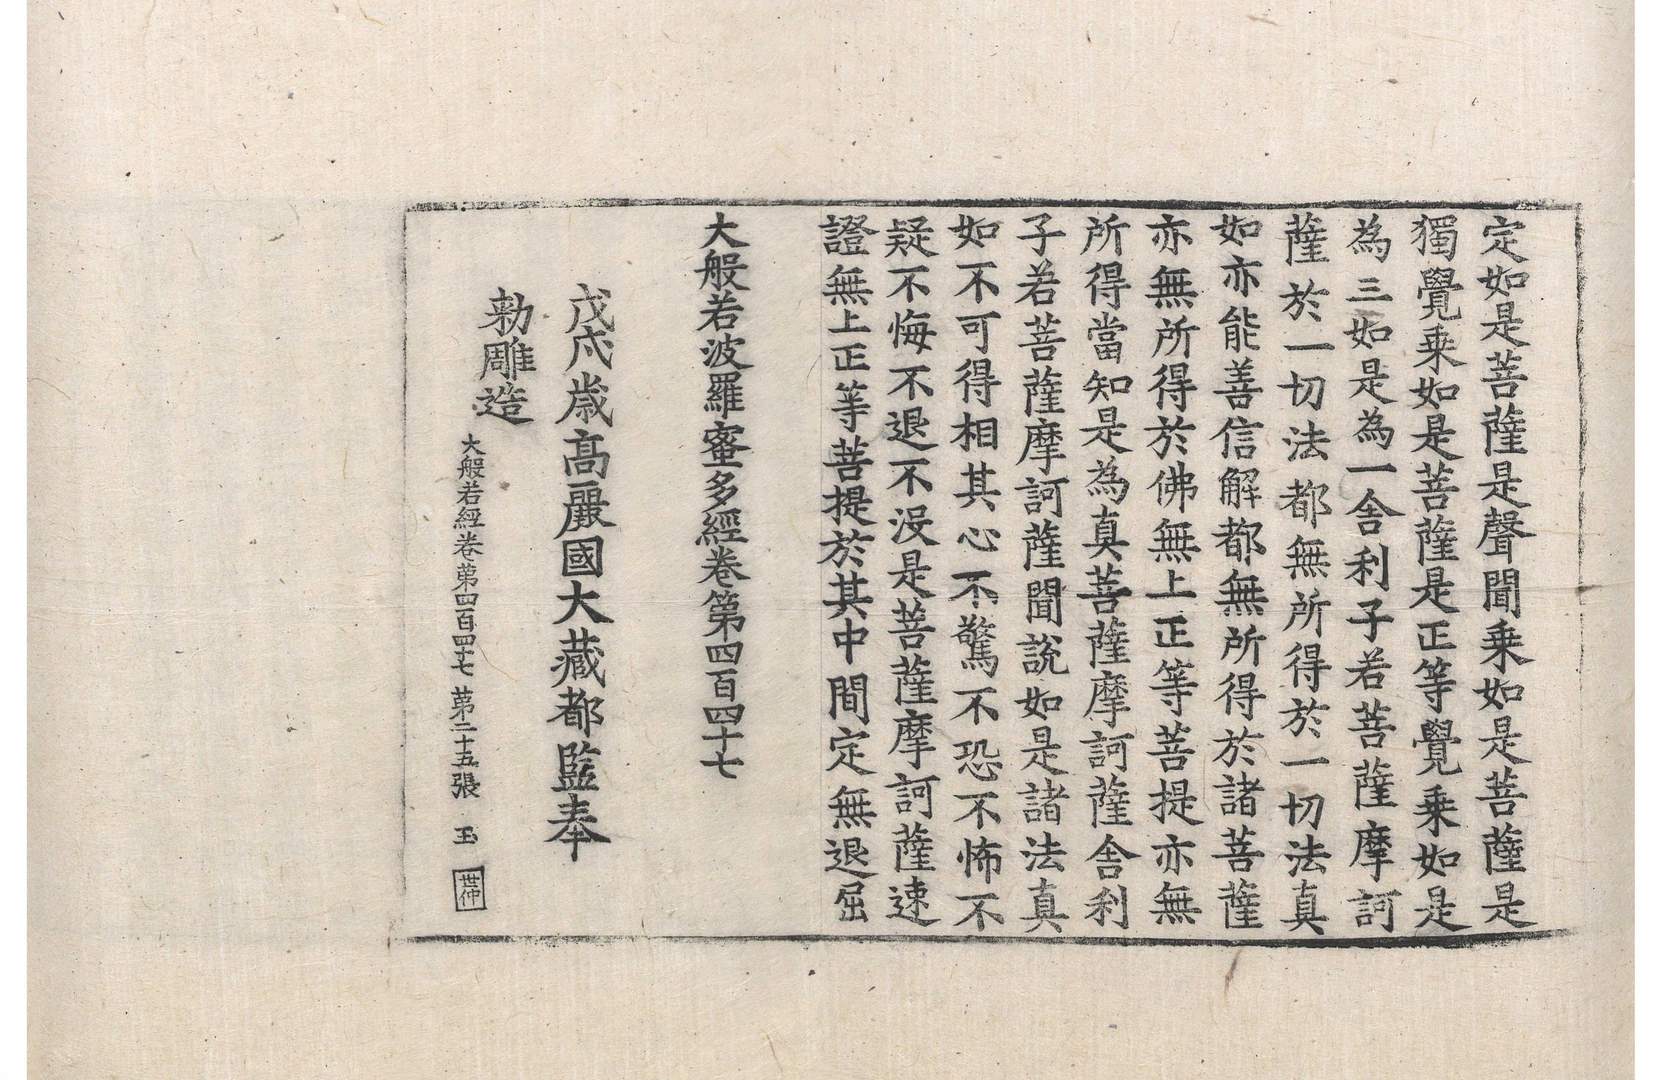 定如是菩薩是聲聞乗如是菩薩是
獨覺乗如是菩薩是正等覺乗如是
為三如是為一舍利子若菩薩摩訶
薩於一切法都無所得於一切法真
如亦能善信解都無所得於諸菩薩
亦無所得於佛無上正等菩提亦無
所得當知是為真菩薩摩訶薩舍利
子若菩薩摩訶薩聞說如是諸法真
如不可得相其心不驚不恐不怖不
疑不悔不退不沒是菩薩摩訶薩速
證無上正等菩提於其中間定無退屈
大般若波羅蜜多經卷第四百四十七
戊戌歲高麗國大藏都監奉
勅雕造
大般若經卷第四百四十七 第二十五張 玉 世仲